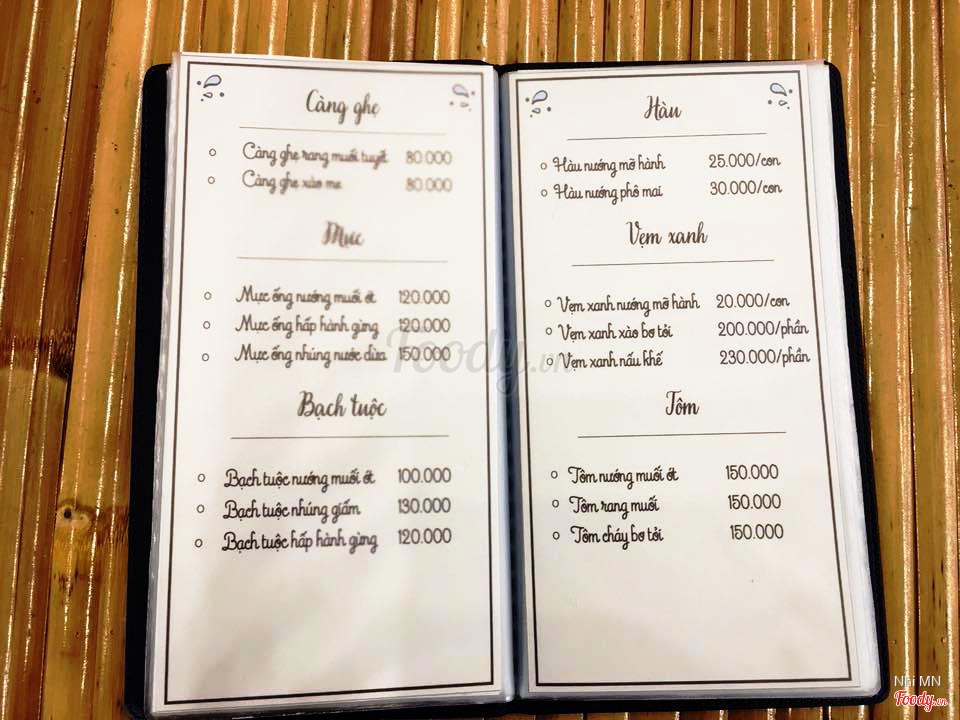 Càng ghẹ
Càng ghẹ rang muối tuyết 80.000
Càng ghẹ xào me 80.000
Mực
Mực ống nướng muối ớt 120.000
Mực ống hấp hành gừng 120.000
Mực ống nhúng nước dừa 150.000
Bạch tuộc
Bạch tuộc nướng muối ớt 100.000
Bạch tuộc nhúng giấm 130.000
Bạch tuộc hấp hành gừng 120.000
Hàu
Hàu nướng mỡ hành 25.000/con
Hàu nướng phô mai 30.000/con
Vẹm xanh
Vẹm xanh nướng mỡ hành 20.000/con
Vẹm xanh xào bơ tỏi 200.000/phần
Vẹm xanh nấu khế 230.000/phần
Tôm
Tôm nướng muối ớt 150.000
Tôm rang muối 150.000
Tôm cháy bơ tỏi 150.000
Foody.vn
Nhi MN
Foody.vn